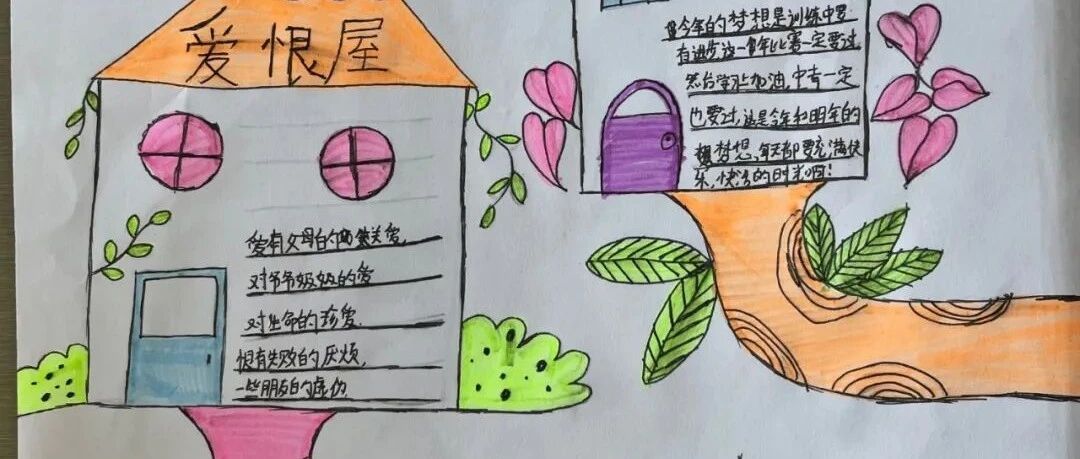 爱恨屋
爱有父母的关爱
对爷爷奶奶的爱
对生命的珍爱.
恨有失败的厌烦,
一些朋友的虚伪
今年的梦想是训练中要
有进步,这一青年比赛一定要过,
然后学业加油,中考一定
也要过,这是今年和明年的
梦想,每天都要充满快
乐,快活的时光啊!